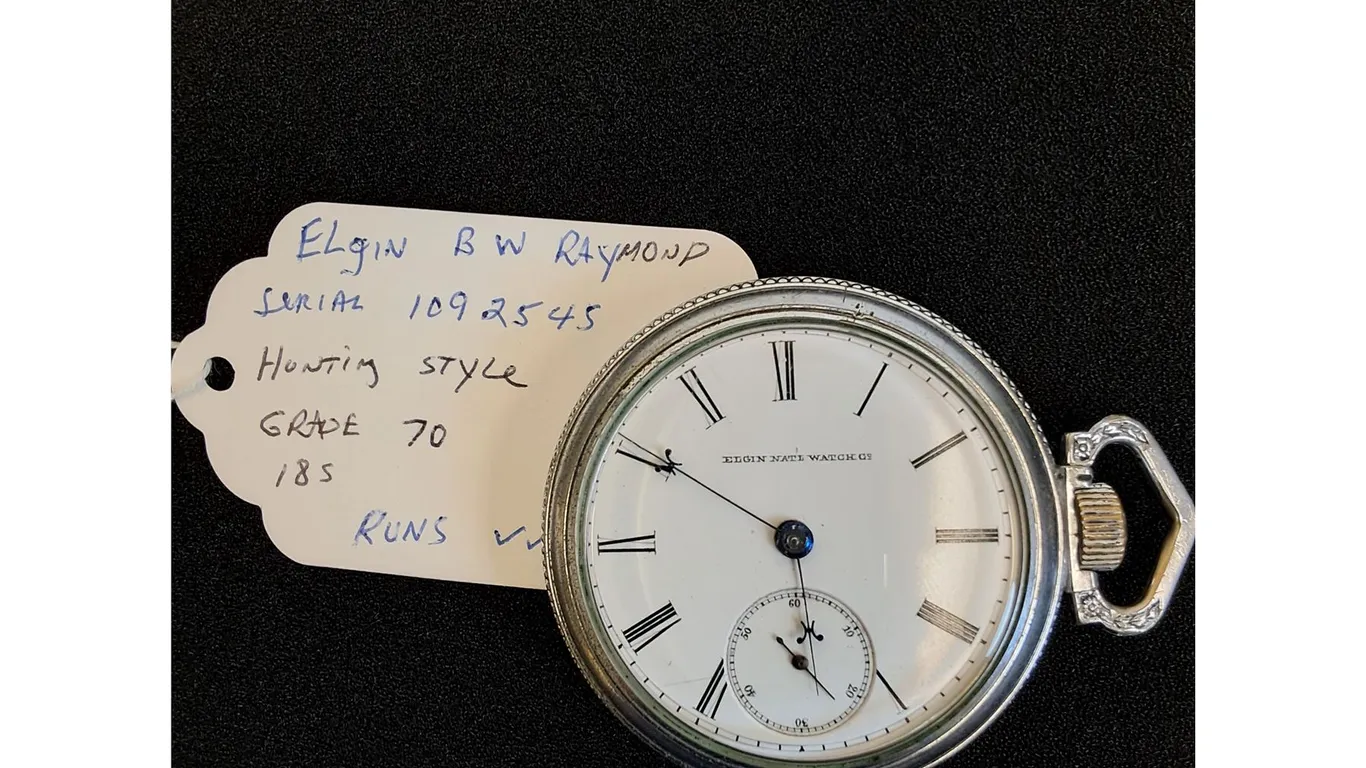 ELgIN B W RAYMOND
SERIAL 1092545
HUNTING STYLE
GRADE 70
18S
RUNS ✓✓
XII
I
II
III
IIII
V
VII
VIII
IX
X
XI
ELGIN NAT'L WATCH CO.
60
10
20
30
40
50